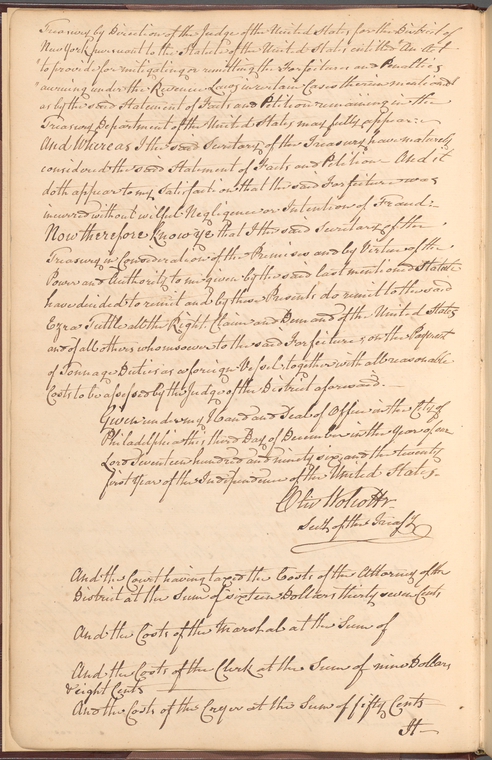 Treasury by Direction of the Judge of the United States for the District of
New York pursuant to the Statute of the United States entitled "An Act
"to provide for mitigating or remitting the Forfeitures and Penalties
"accruing under the Revenue Laws in certain Cases therein mentioned"
as by the said Statement of Facts and Petition remaining in the
Treasury Department of the United States may fully appear:
And Whereas I the said Secretary of the Treasury have maturely
considered the said Statement of Facts and Petition And it
doth appear to my Satisfaction that the said Forfeiture was
incurred without wilful Negligence or Intention of Fraud:
Now therefore Know Ye that I the said Secretary of the
Treasury in Consideration of the Premises and by Virtue of the
Power and Authority to me given by the said last mentioned Statute
have decided to remit and by these Presents do remit to the said
Ezra Tuttle all the Right Claim and Demand of the United States
and of all others whomsoever to the said Forfeiture, on the Payment
of Tonnage Duties as a foreign Vessel together with all reasonable
Costs to be assessed by the Judge of the District aforesaid.
Given under my Hand and Seal of Office in the City of
Philadelphia this third Day of December in the Year of our
Lord Seventeen hundred and ninety six, and the twenty
first Year of the Independence of the United States.
Oliv Wolcott
Secy. of the Treasy.
And the Court having taxed the Costs of the Attorney of the
District at the Sum of sixteen Dollars thirty seven Cents
And the Costs of the Marshal at the Sum of
And the Costs of the Clerk at the Sum of nine Dollars
& eight Cents
And the Costs of the Cryer at the Sum of fifty Cents
It